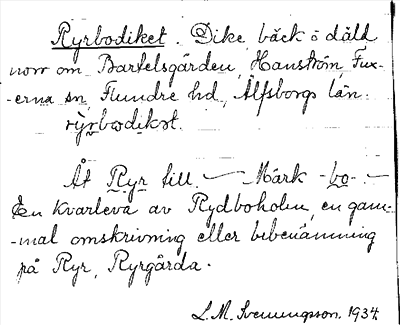 Ryrbodiket. Dike, bäck o däld
norr om Bartelsgården, Hanström, Fux-
-erna sn, Flundre hd, Älfsborgs län.
rỳrbodikət.
Åt Ryr till. — Märk -bo-. —
En kvarleva av Rydboholm, en gam-
-mal omskrivning eller bibenämning
på Ryr, Ryrgårda.
L.M. Svenungsson. 1934